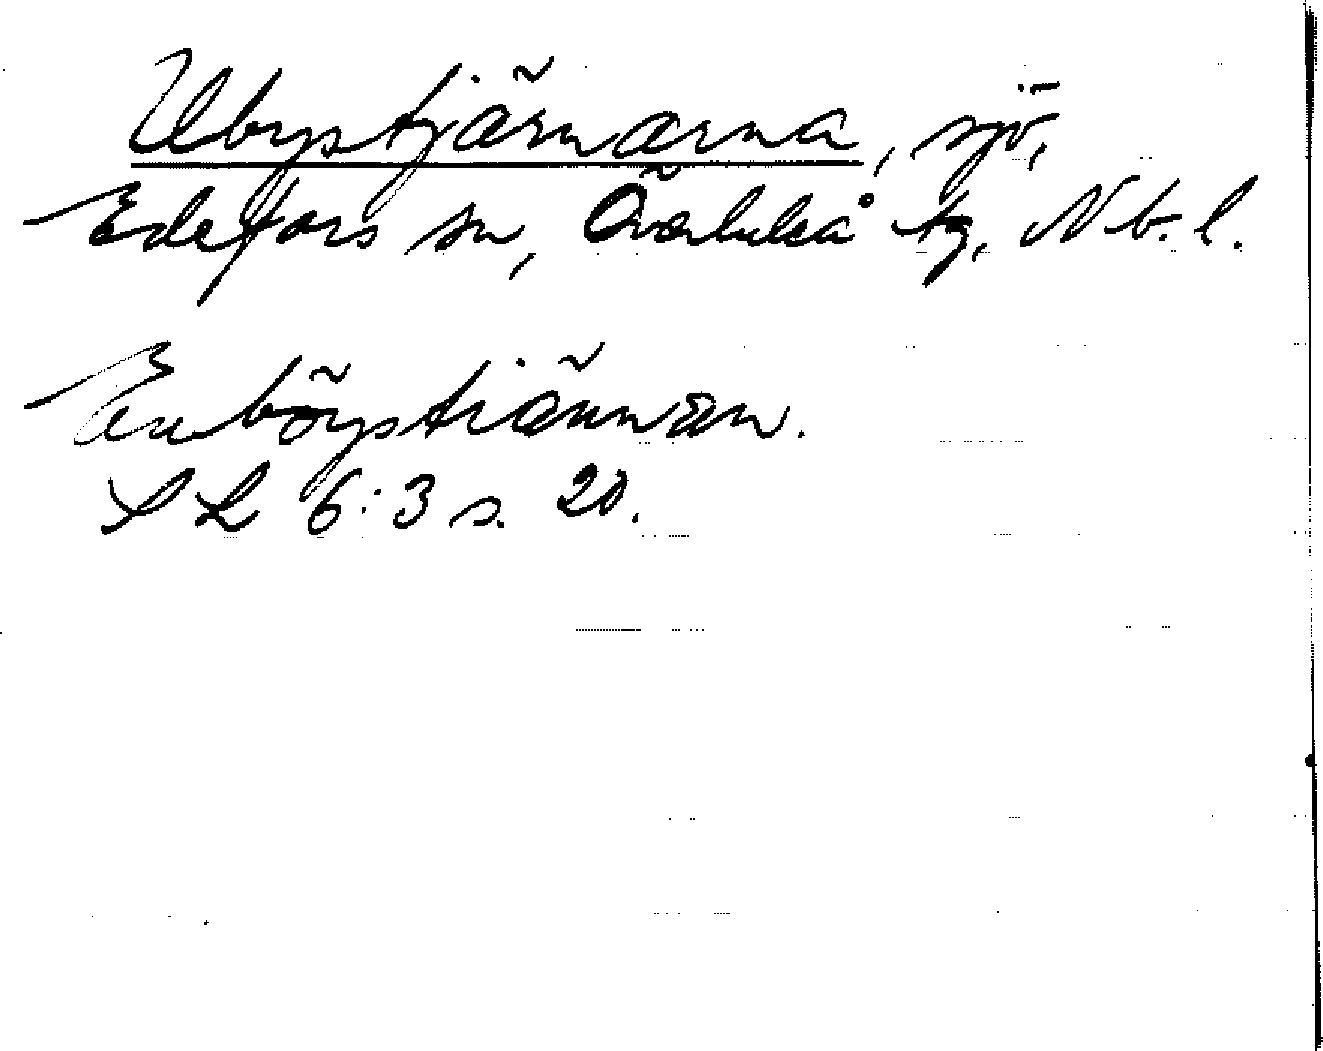 Ubystjärnarna, sjö,
Edefors sn, Överluleå tg. Nb. l.
böystiännan.
S L 6:3 s. 20.